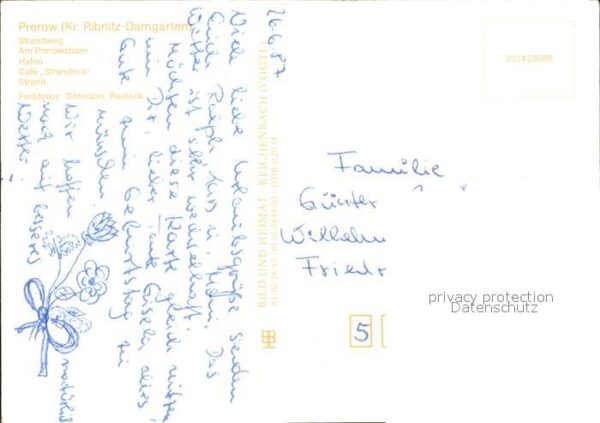 Prerow (Kr. Ribnitz-Damgarten)
Strandweg
Am Prerowstrom
Hafen
Café „Strandeck"
Strand
Farbfotos: Dittmann, Rostock
26.6.87
Viele liebe Urlaubsgrüße senden
Euch Ralph, u. Das
Wetter ist sehr wechselhaft.
Möchten diese Karte gleich nützen
um Dir, liebe Tante Gisela alles
Gute zum Geburtstag zu
wünschen.
Wir hoffen natürlich
noch auf besseres
Wetter!
BILD UND HEIMAT REICHENBACH (VOGTL)
DDR 0,20 M
301428/86
Familie
Günter
Wilhelm
Friedr
5
privacy protection
Datenschutz